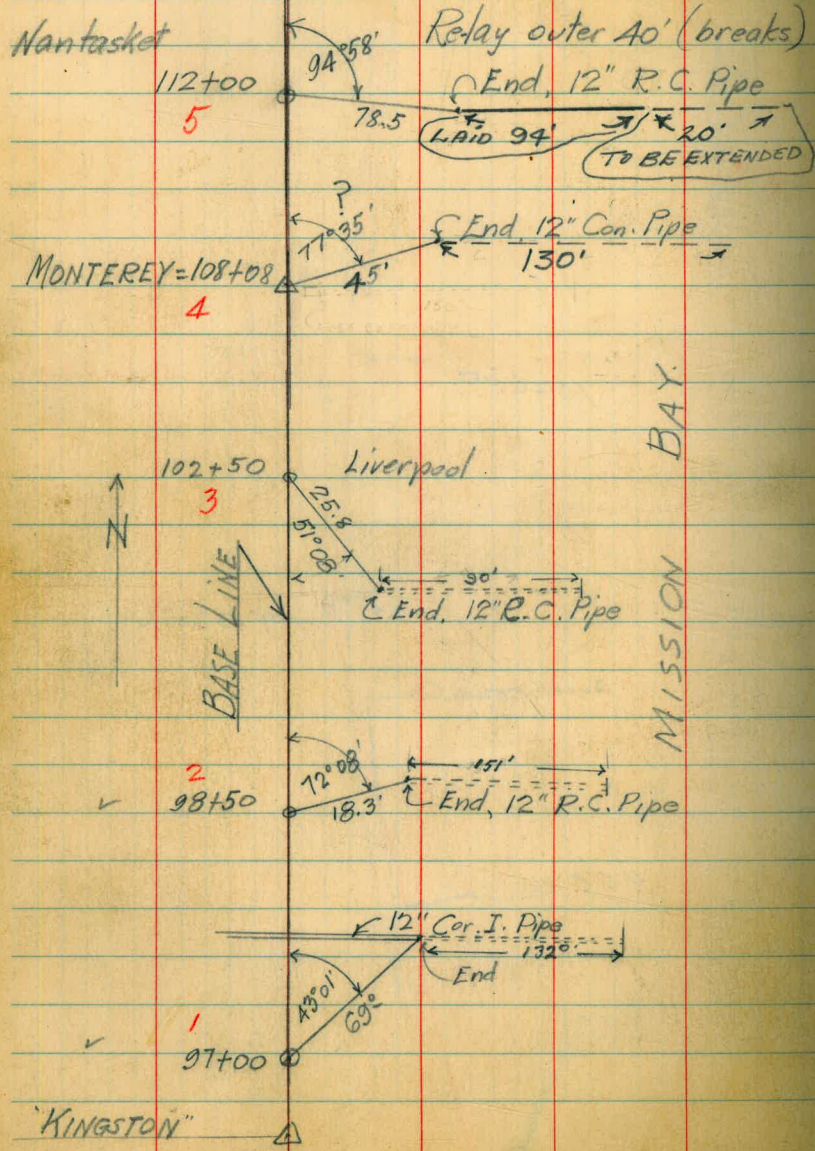 Nantasket
Relay outer 40' (breaks)
94°58'
112+00
End, 12" R.C. Pipe
5
78.5
LAID 94'
20'
TO BE EXTENDED
?
77°35'
End, 12" Con. Pipe
130'
MONTEREY=108+08
45'
4
BAY
102+50
Liverpool
3
25.8
51°08'
N
90'
End, 12" R.C. Pipe
BASE LINE
MISSION
2
72°08'
151'
98+50
18.3'
End, 12" R.C. Pipe
12" Cor. I. Pipe
132°
End
43°01'
69°
1
97+00
"KINGSTON"